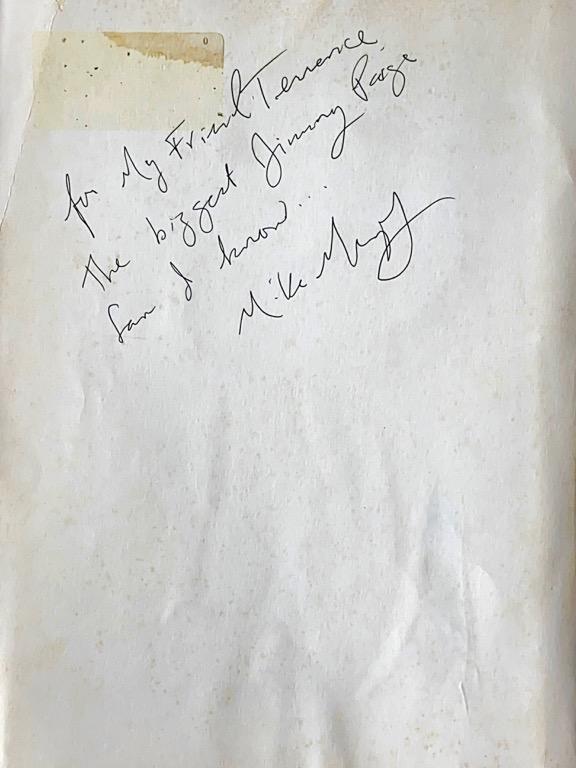 for My Friend Terrance
the biggest Jimmy Paige
fan I know...
Mike
0